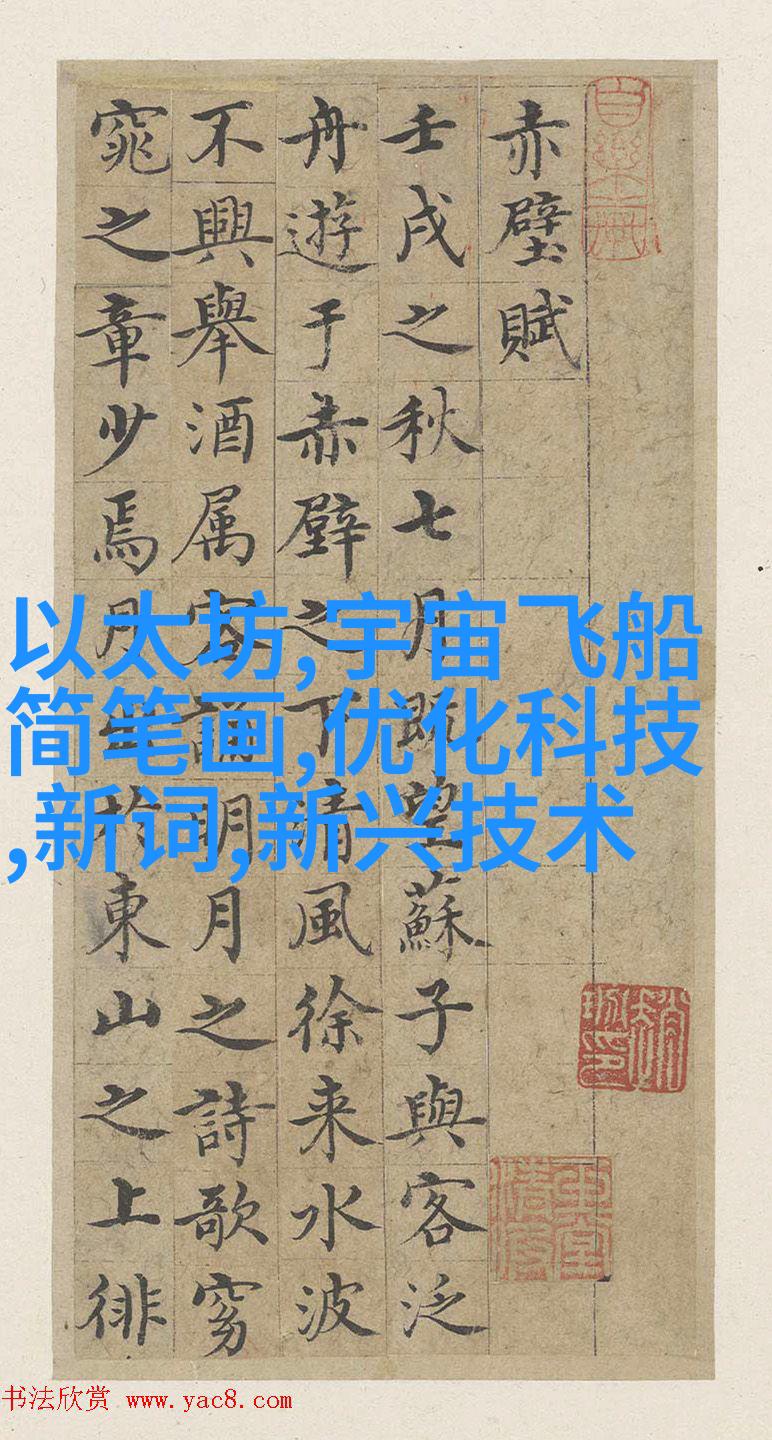 赤壁賦
壬戌之秋七月既望蘇子與客泛
舟遊于赤壁之下清風徐来水波
不興舉酒属客誦明月之詩歌窈
窕之章少焉月出於東山之上徘
以太坊,宇宙飞船
简笔画,优化科技
,新词,新兴技术
书法欣赏 www.yac8.com